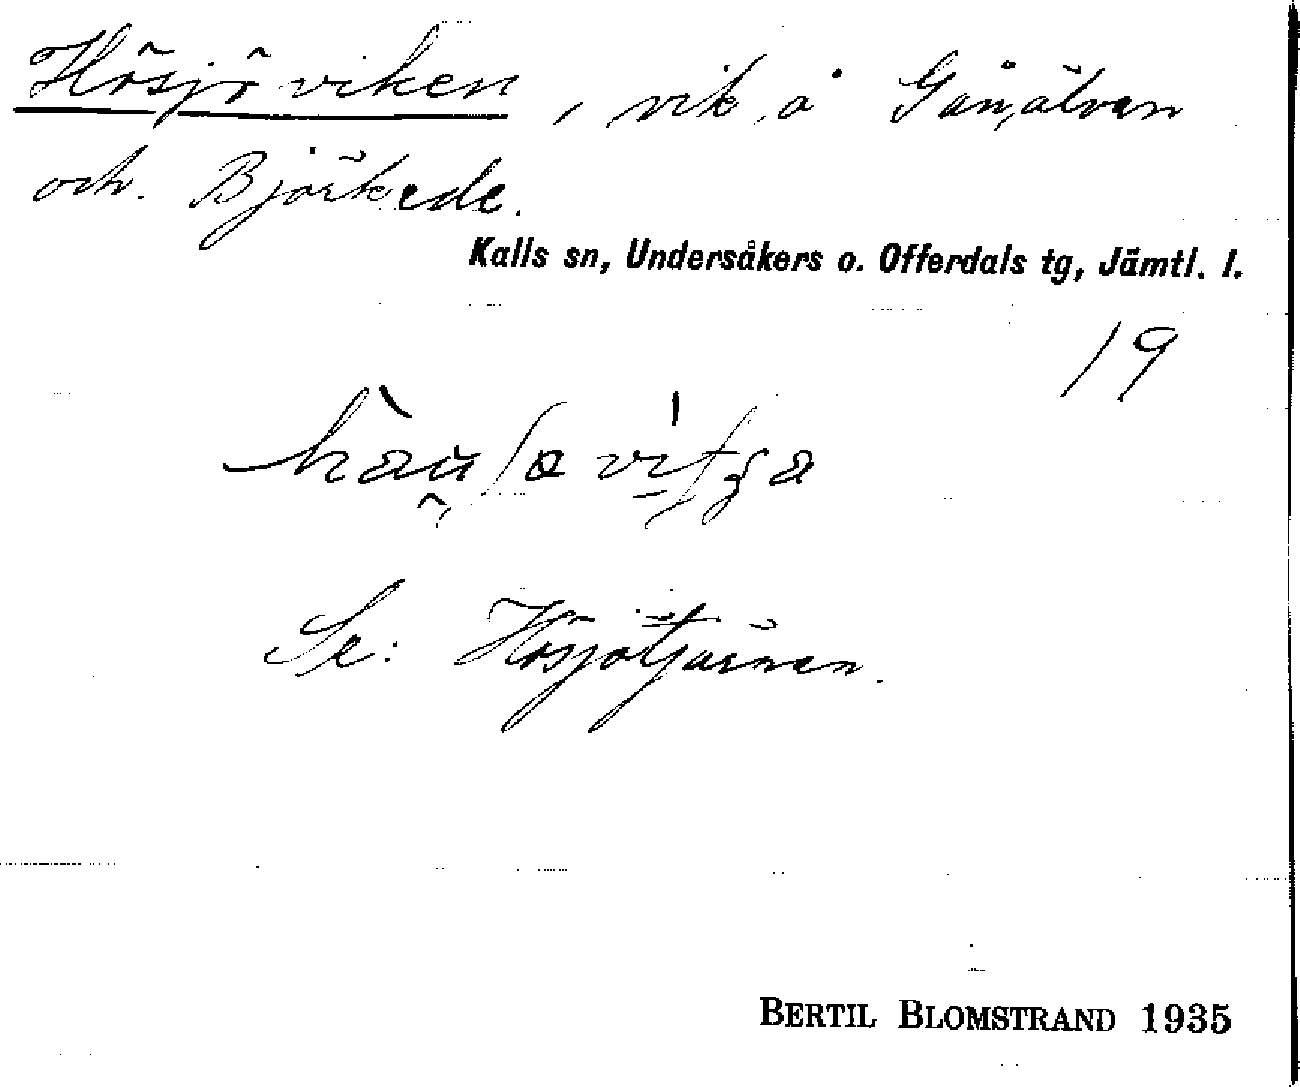 Hösjöviken, vik å Gånälven
och Björkede.
Kalls sn, Undersåkers o. Offerdals tg, Jämtl. l.
19
Se: Hösjötjärnen.
BERTIL BLOMSTRAND 1935